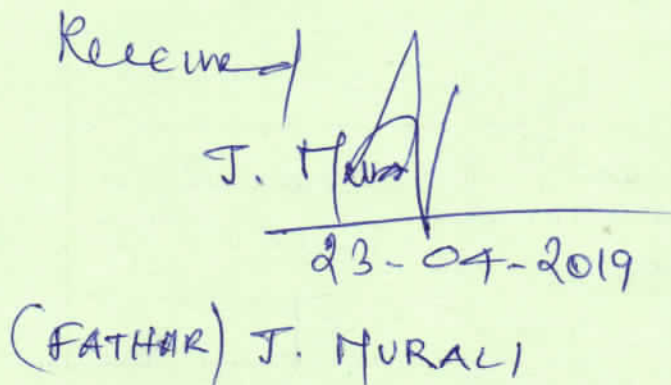 Received
J. Murali
23-04-2019
(FATHAR) J. MURALI